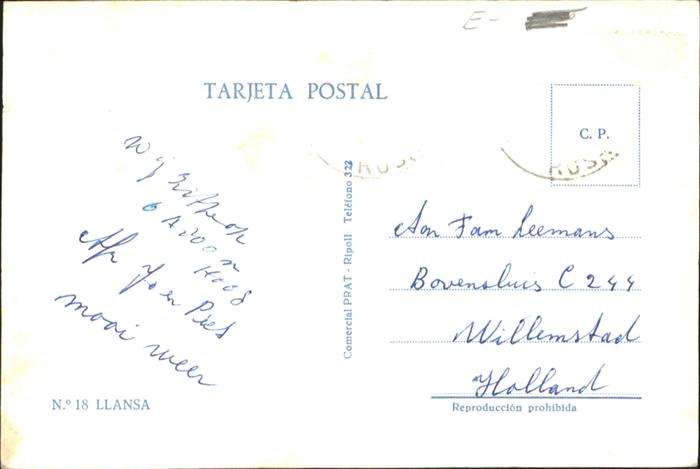 E-
TARJETA POSTAL
C. P.
ROSA
ROSA
Wij zitten op
6 A 200 m
Hoog
Afz Jo en Piet
mooi weer
Comercial PRAT - Ripoll Teléfono 322
Aan Fam Leemans
Bovensluis C 244
Willemstad
Holland
N.º 18 LLANSA
Reproducción prohibida